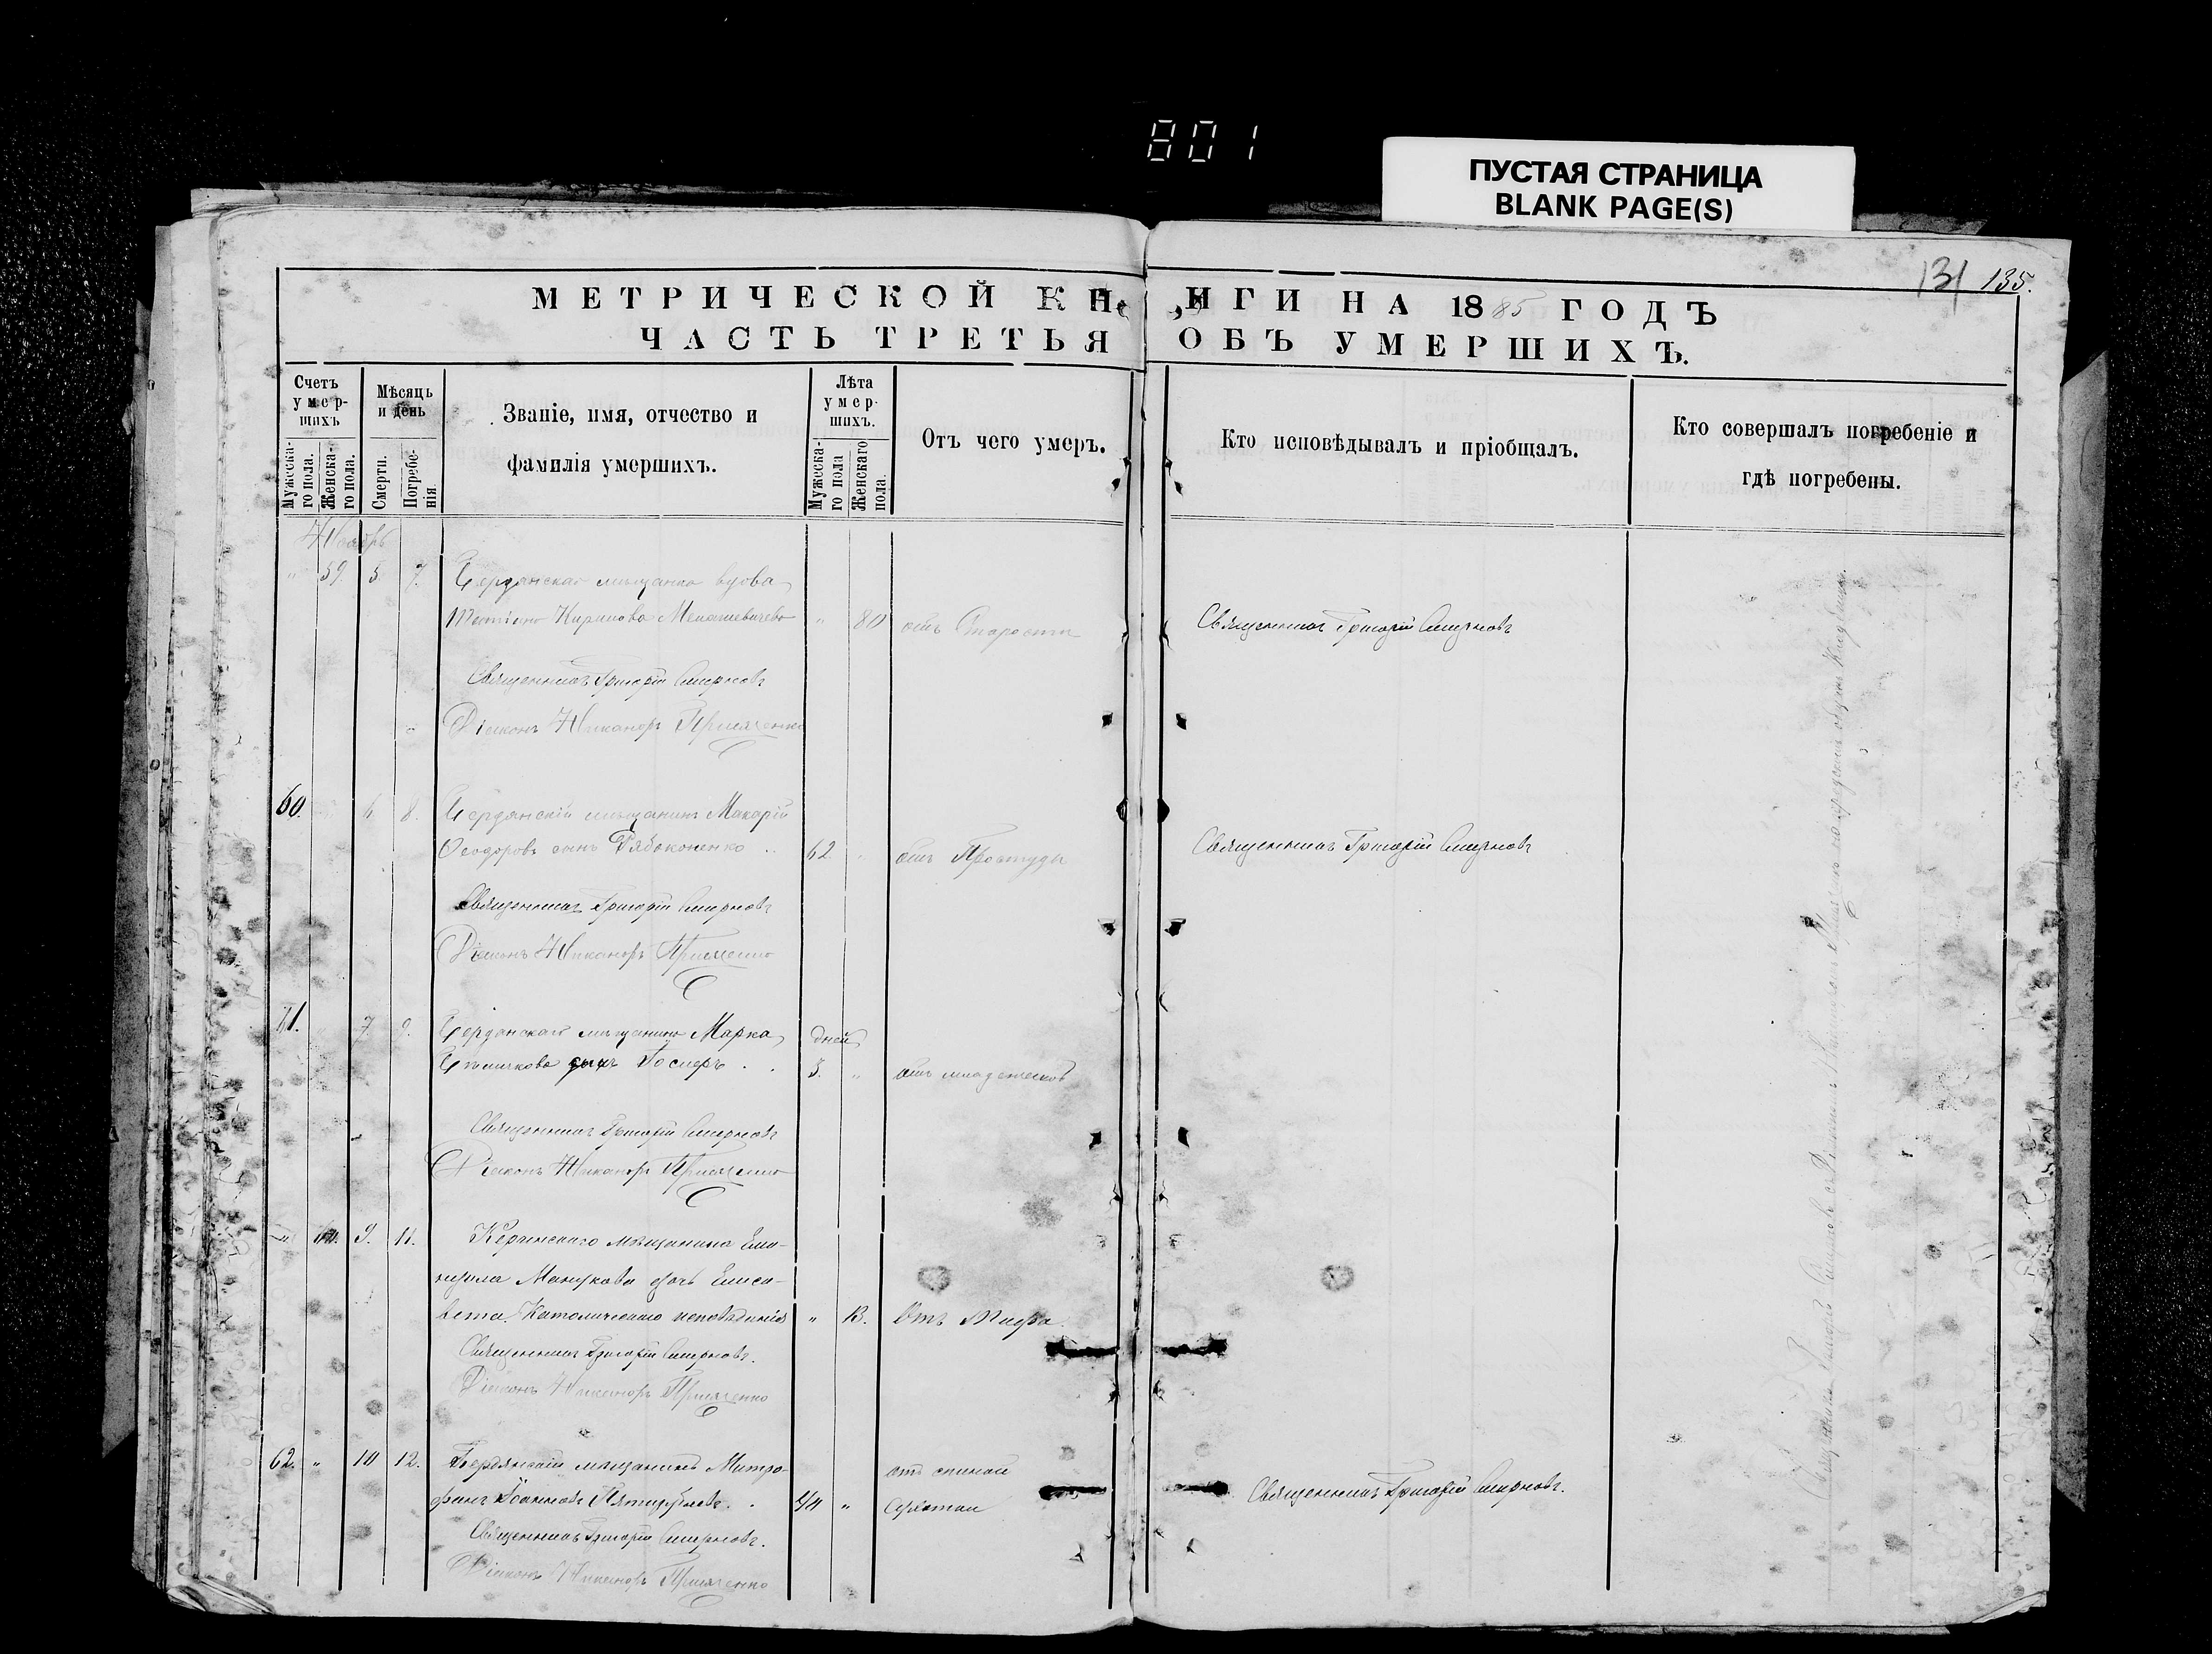 801
ПУСТАЯ СТРАНИЦА
BLANK PAGE(S)
131 135.
МЕТРИЧЕСКОЙ КН ИГИ НА 1885 ГОДЪ
ЧАСТЬ ТРЕТЬЯ ОБЪ УМЕРШИХЪ.
Счетъ умер-шихъ
Мужеска-го пола.
Женска-го пола.
Мѣсяцъ и день
Смерти.
Погребе-нія.
Званіе, имя, отчество и
фамилія умершихъ.
Лѣта умер-шихъ.
Мужеска-го пола
Женскаго пола.
Отъ чего умеръ.
Кто исповѣдывалъ и пріобщалъ.
Кто совершалъ погребеніе и
гдѣ погребены.
Ноябрь
" 59. 5. 7. Бердянская мѣщанка вдова
Кирилова " 80 отъ Старости Священникъ Григорій Смирновъ
Священникъ Григорій Смирновъ
Діаконъ Никаноръ
60. 6. 8. Бердянскій мѣщанинъ Макарій
Ѳеодоровъ сынъ Рябоконенко 62 " отъ Простуды Священникъ Григорій Смирновъ
Священникъ Григорій Смирновъ
Діаконъ Никаноръ
61. " 7. 9. Бердянскаго мѣщанина Марка дней
сынъ Іосифъ 3. " отъ младенческой
Священникъ Григорій Смирновъ
Діаконъ Никаноръ
" 60. 9. 11. Керченскаго мѣщанина
дочь Елиса-
вета. Католическаго исповѣданія " 13. Отъ Тифа.
Священникъ Григорій Смирновъ.
Діаконъ Никаноръ
62. " 10 12. Бердянскій мѣщанинъ Митро-
фанъ Іоанновъ 40 " отъ спинной сухотки Священникъ Григорій Смирновъ.
Священникъ Григорій Смирновъ.
Діаконъ Никаноръ
Священникъ Григорій Смирновъ съ Діакономъ Никаноромъ на городскомъ общемъ Кладбищѣ.